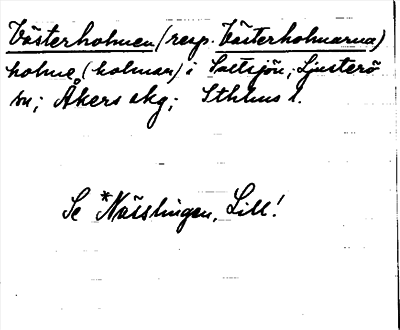 Västerholmen (resp. Västerholmarna)
holme (holmar) i Saltsjön, Ljusterö
sn; Åkers skg; Sthlms l.
Se *Nässlingen, Lill!